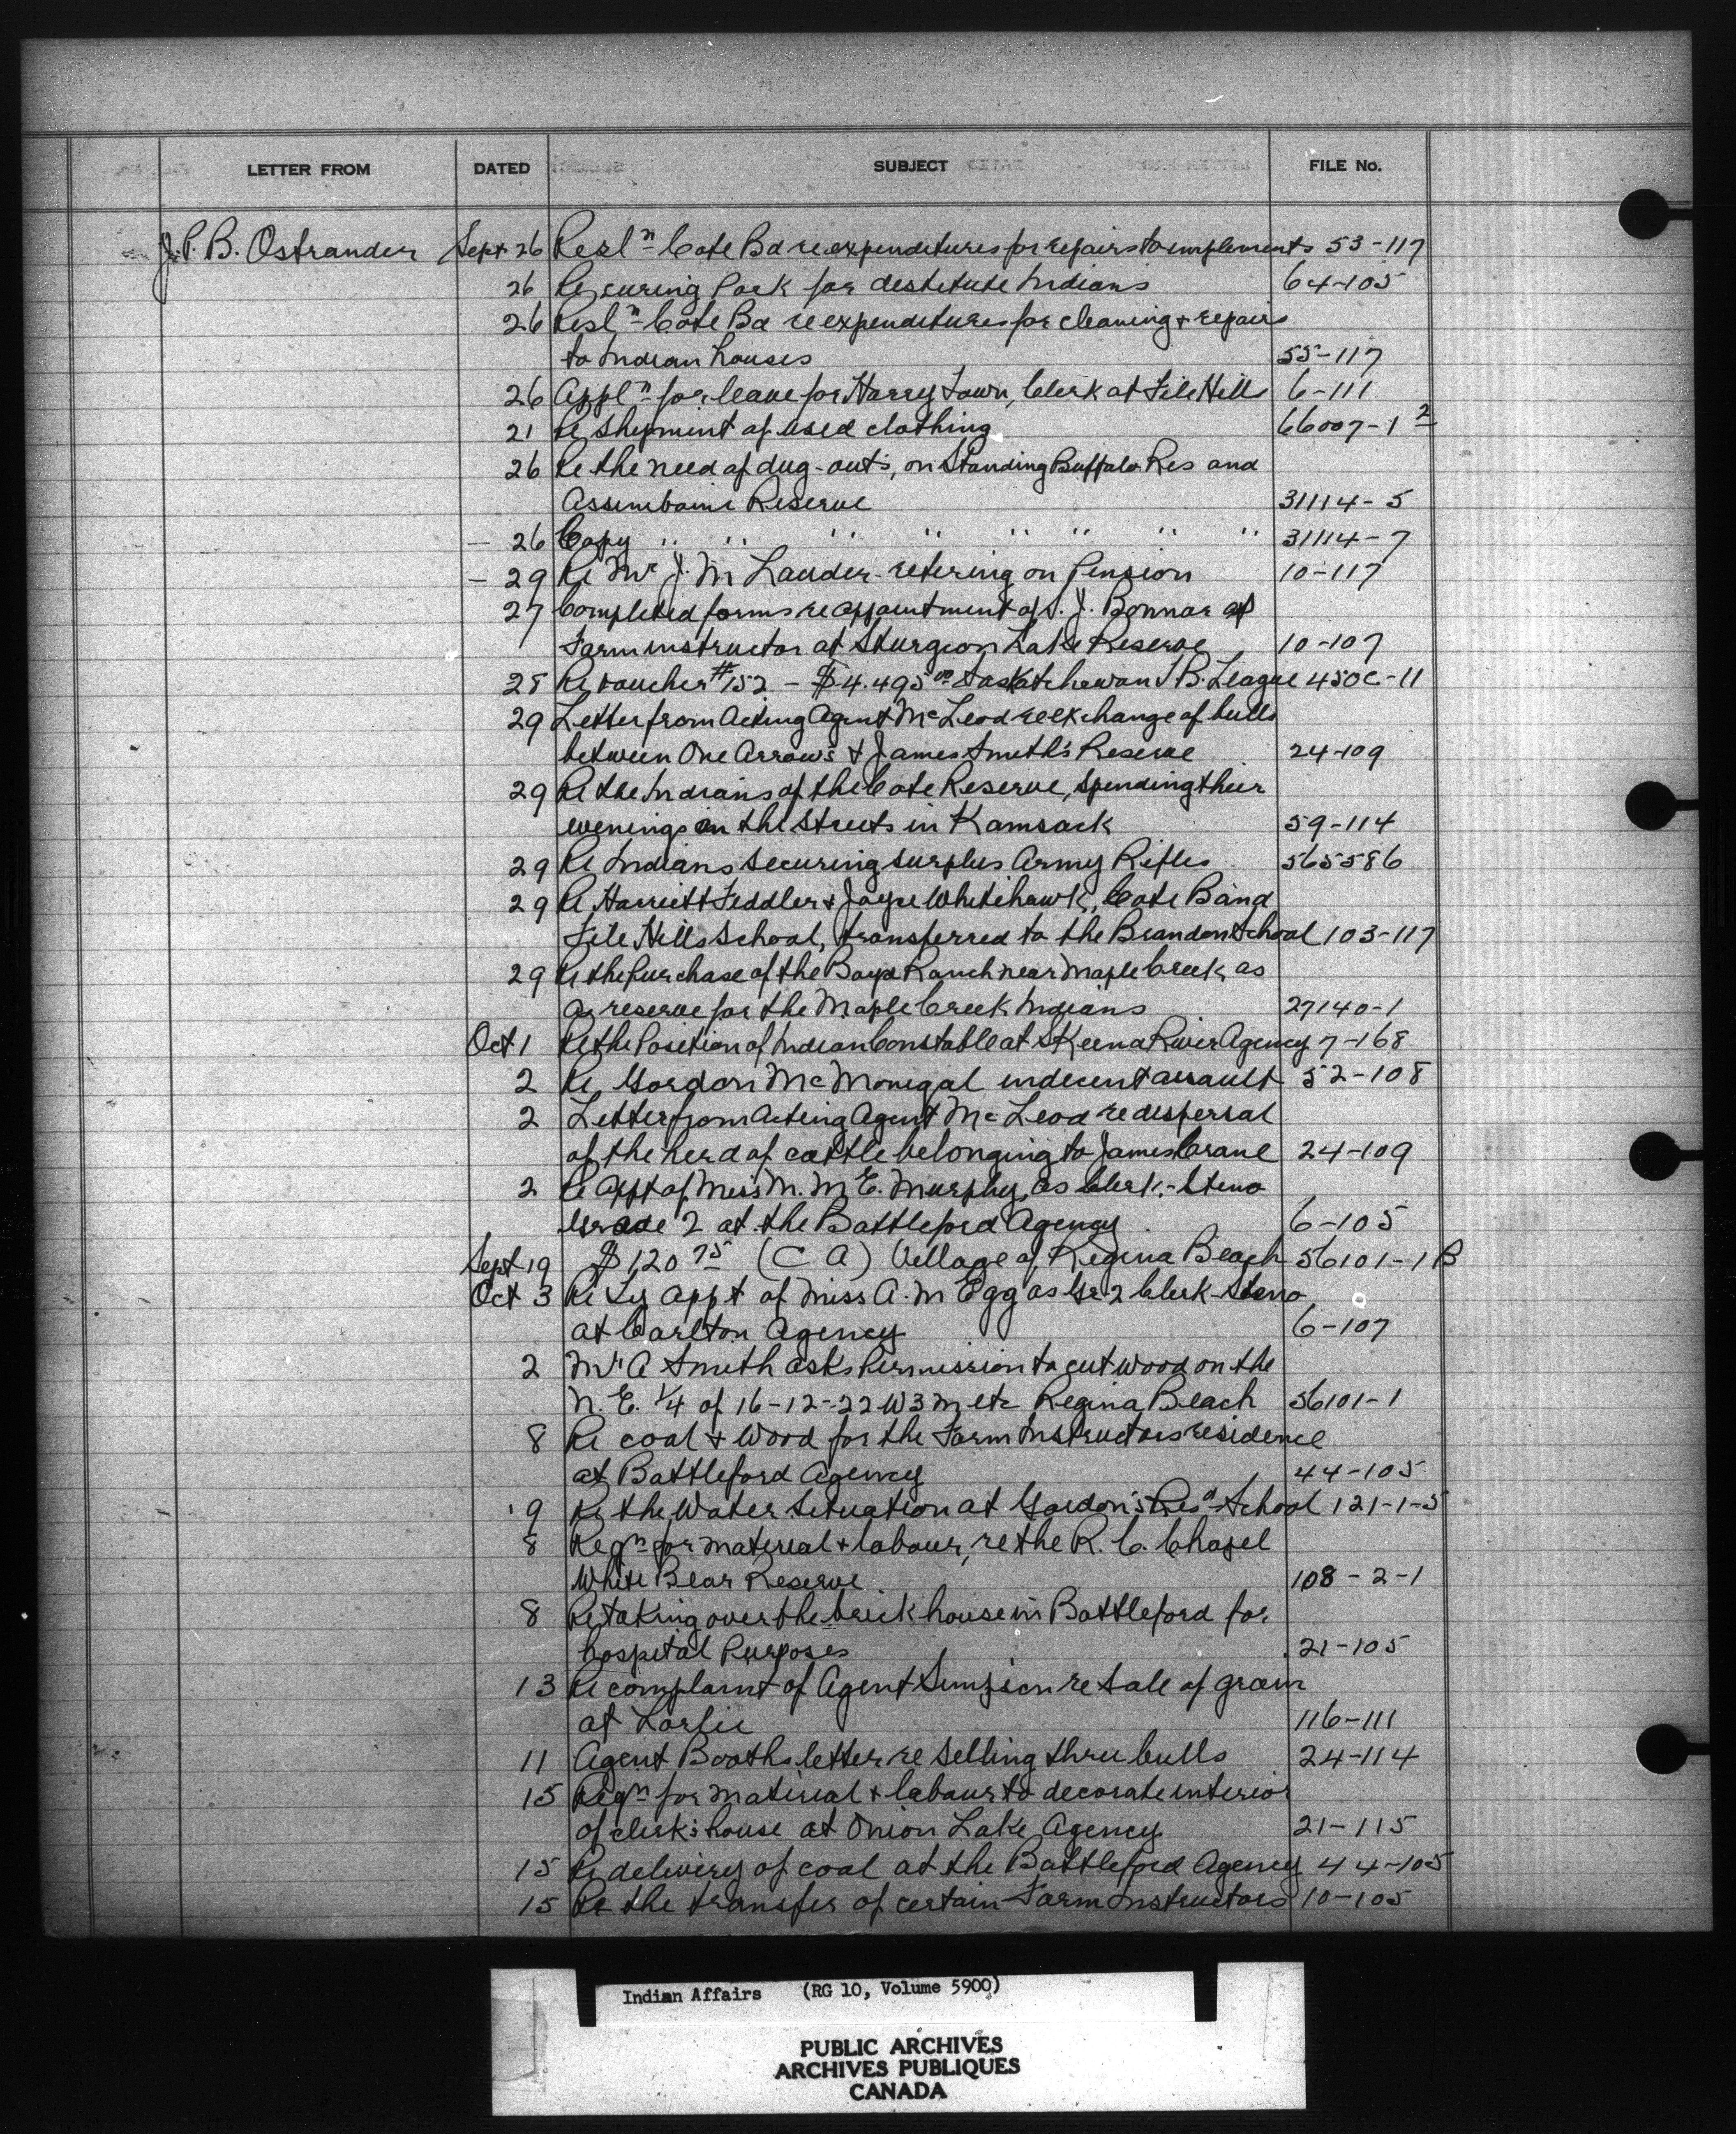 LETTER FROM DATED SUBJECT FILE No.
J.P.B. Ostrander Sept 26 Resl<sup>n</sup> Cote Bd re expenditures for repairs to implements 53-117
26 Re curing Pork for destitute Indians 64-105
26 Resl<sup>n</sup> Cote Bd re expenditures for cleaning + repairs
to Indian houses 55-117
26 Appl<sup>n</sup> for leave for Harry Town, Clerk at File Hills 6-111
21 Re shipment of used clothing 66007-1 2
26 Re the need of dug-outs, on Standing Buffalo Res and
Assiniboine Reserve 31114-5
- 26 Copy " " " " " " " " 31114-7
- 29 Re Mr J. M Lauder retiring on Pension 10-117
27 Completed forms re appointment of J. Bonnar as
Farm instructor at Sturgeon Lake Reserve 10-107
28 Re voucher #152 - $4.495 00 Saskatchewan T B. League 450C-11
29 Letter from Acting Agent McLeod re exchange of bulls
between One Arrow's & James Smith's Reserve 24-109
29 Re the Indians of the Cote Reserve, spending their
evenings on the Streets in Kamsack 59-114
29 Re Indians securing surplus Army Rifles 565586
29 Re Harriett Feddler & Joyce Whitehawk, Cote Band
File Hills School, transferred to the Brandon School 103-117
29 Re the Purchase of the Boyd Ranch near Maple Creek as
a reserve for the Maple Creek Indians 27140-1
Oct 1 Re the Position of Indian Constable at Skeena River Agency 7-168
2 Re Gordon McMonegal indecent assault 52-108
2 Letter from Acting Agent McLeod re dispersal
of the herd of cattle belonging to James Crane 24-109
2 Re Appt of Miss M. M E. Murphy, as Clerk-Steno
Grade 2 at the Battleford Agency 6-105
Sept 19 $120 75 (C A) Village of Regina Beach 56101-1 B
Oct 3 Re Ty appt of Miss A. M Egg as Gr 2 Clerk-Steno
at Carlton Agency 6-107
2 Mr A Smith asks Permission to cut wood on the
N. E. 1/4 of 16-12-22 W3M etc Regina Beach 56101-1
8 Re coal & wood for the Farm Instructors residence
at Battleford Agency 44-105
9 Re the Water Situation at Gordon's Res School 121-1-5
8 Reqn for material & labour, re the R. C. Chapel
White Bear Reserve 108-2-1
8 Re taking over the brick house in Battleford for
hospital Purposes 21-105
13 Re complaint of Agent re Sale of grain
at Lorlie 116-111
11 Agent Booths letter re selling three bulls 24-114
15 Reqn for material & labour to decorate interior
of clerk's house at Onion Lake Agency 21-115
15 Re delivery of coal at the Battleford Agency 44-105
15 Re the transfer of certain Farm Instructors 10-105
Indian Affairs (RG 10, Volume 5900)
PUBLIC ARCHIVES
ARCHIVES PUBLIQUES
CANADA